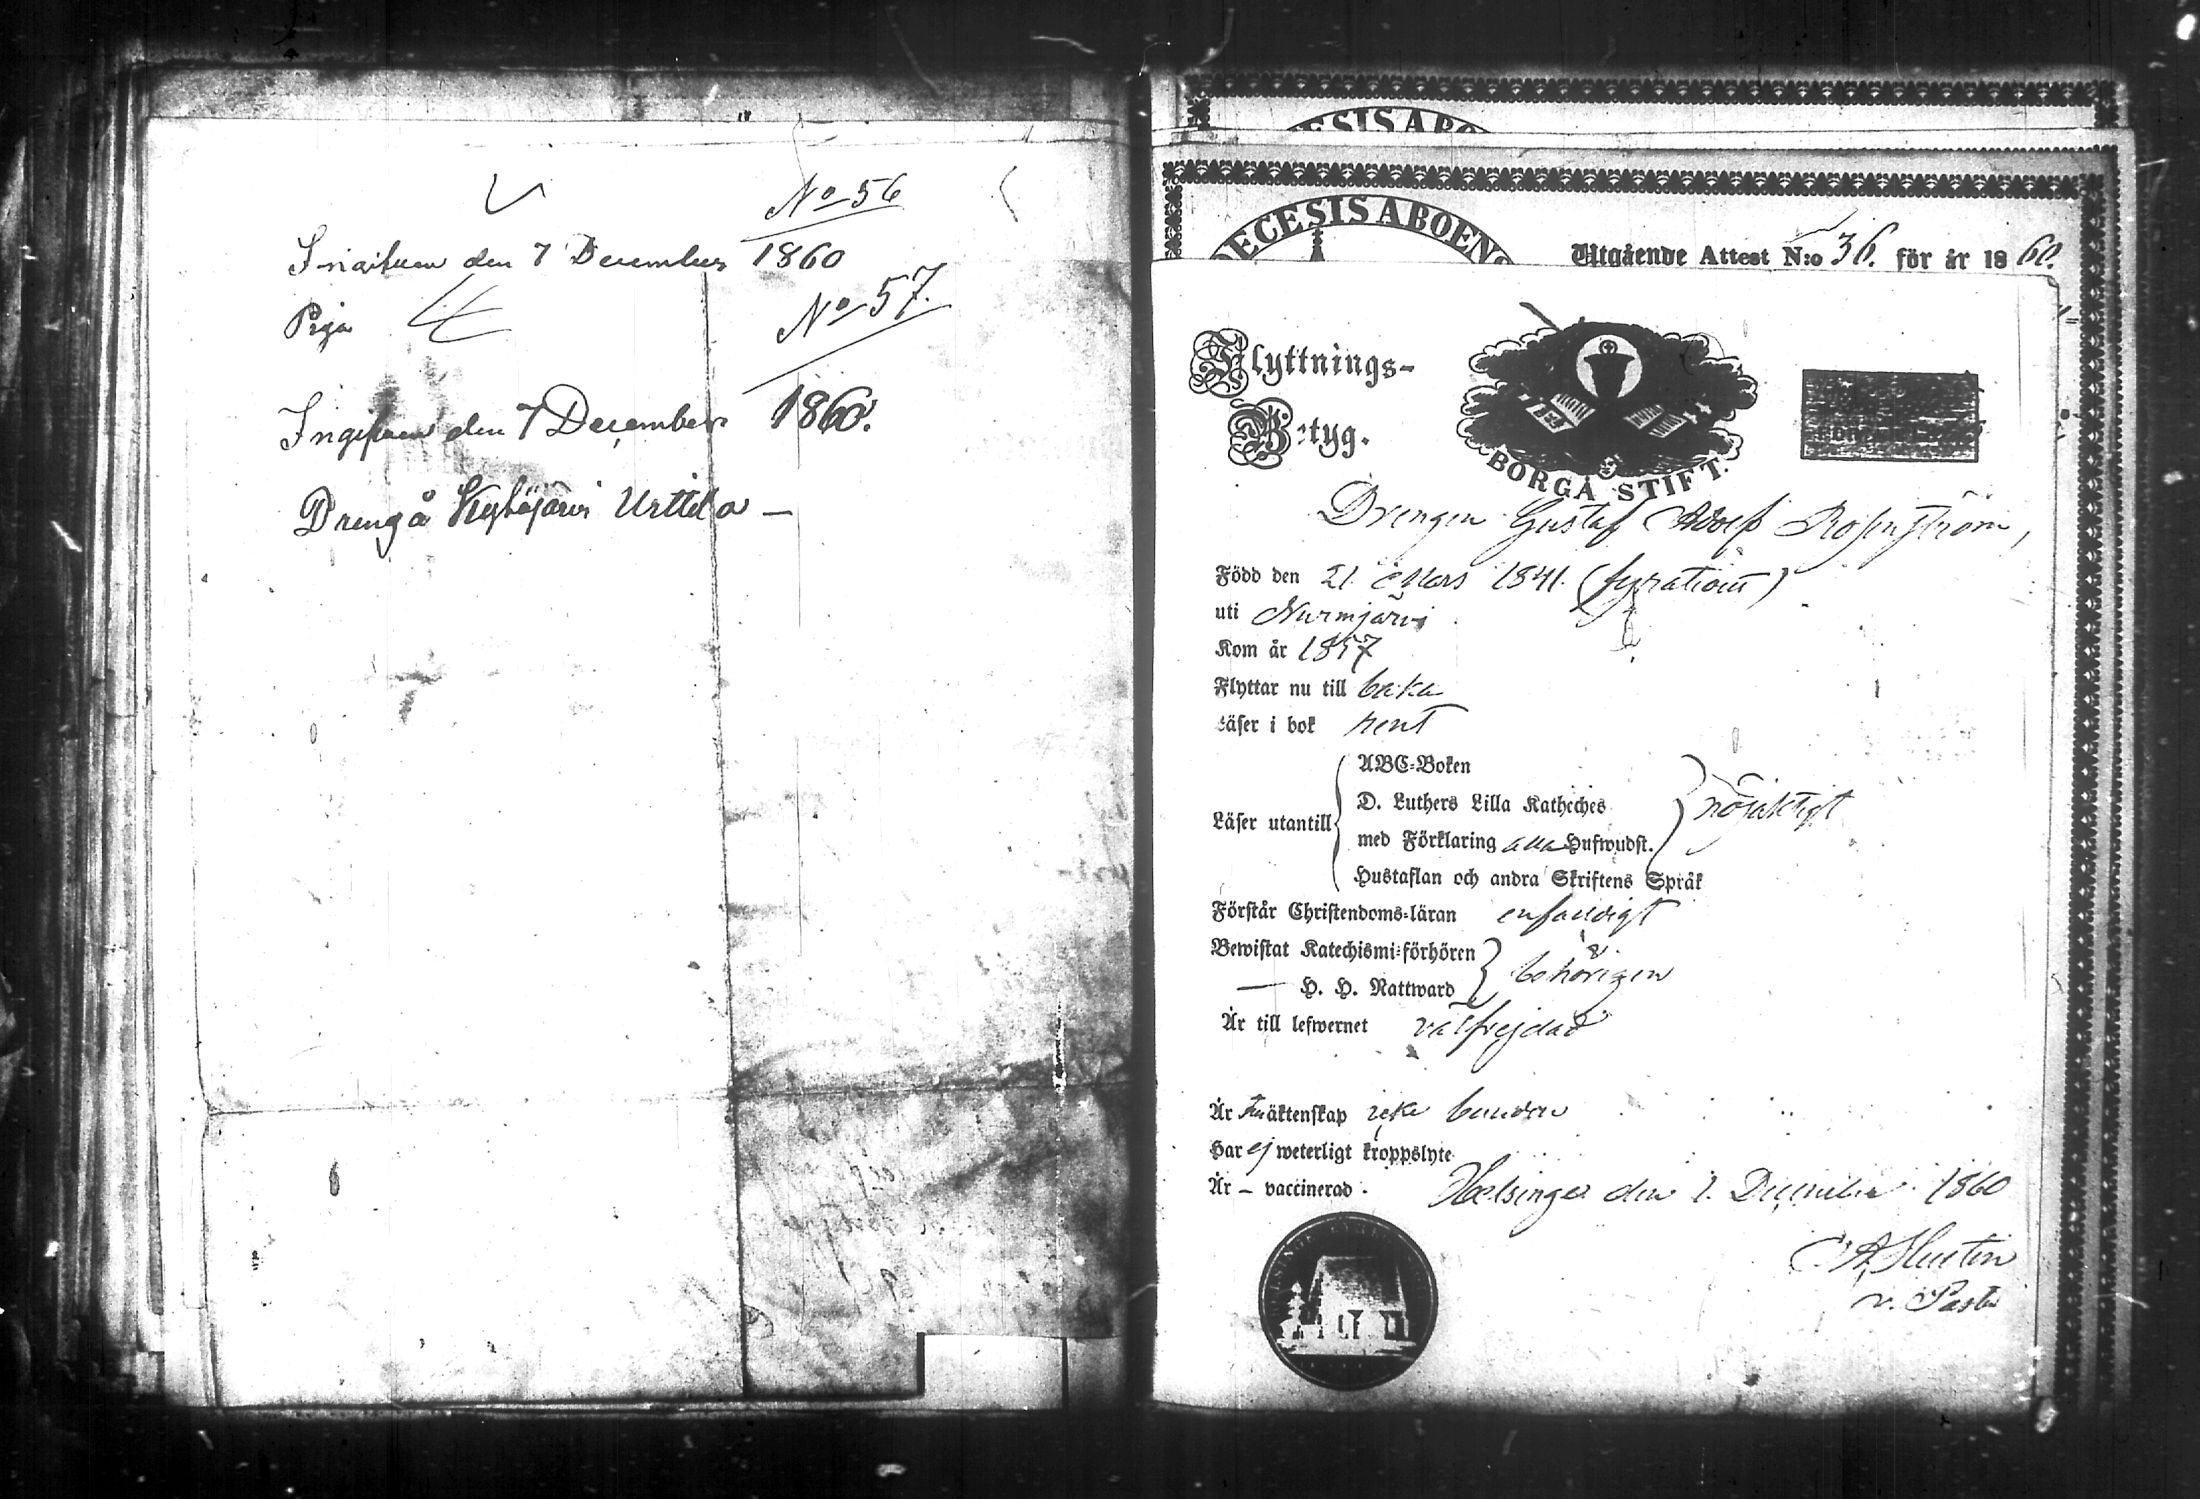 No 56
Ingifven den 7 December 1860
Piga
No 57.
Ingifven den 7 December 1860.
Dreng å Kyläjärvi Uttila
ECESIS ABO
DECESIS ABOEN
Utgående Attest N:o 36. för år 1860.
Flyttnings-
Betyg.
BORGÅ STIFT.
Drengen Gustaf Adolf Rosenström,
Född den 21. Mars 1841. (fyrationett)
uti Nurmijärvi
Kom år 1857
Flyttar nu till baka
Läser i bok rent
ABC-Boken
D. Luthers Lilla Katheches
Läser utantill
nöjaktigt
med Förklaring alla Hufwudst.
Hustaflan och andra Skriftens Språk
Förstår Christendoms-läran enfaldigt
Bewistat Katechismi-förhören
behörigen
— H. H. Nattward
Är till lefwernet välfrejdad
Är till äktenskap icke bunden
Har ej weterligt kroppslyte
Är – vaccinerad.
Helsinge den 1. December 1860
v. Pastor